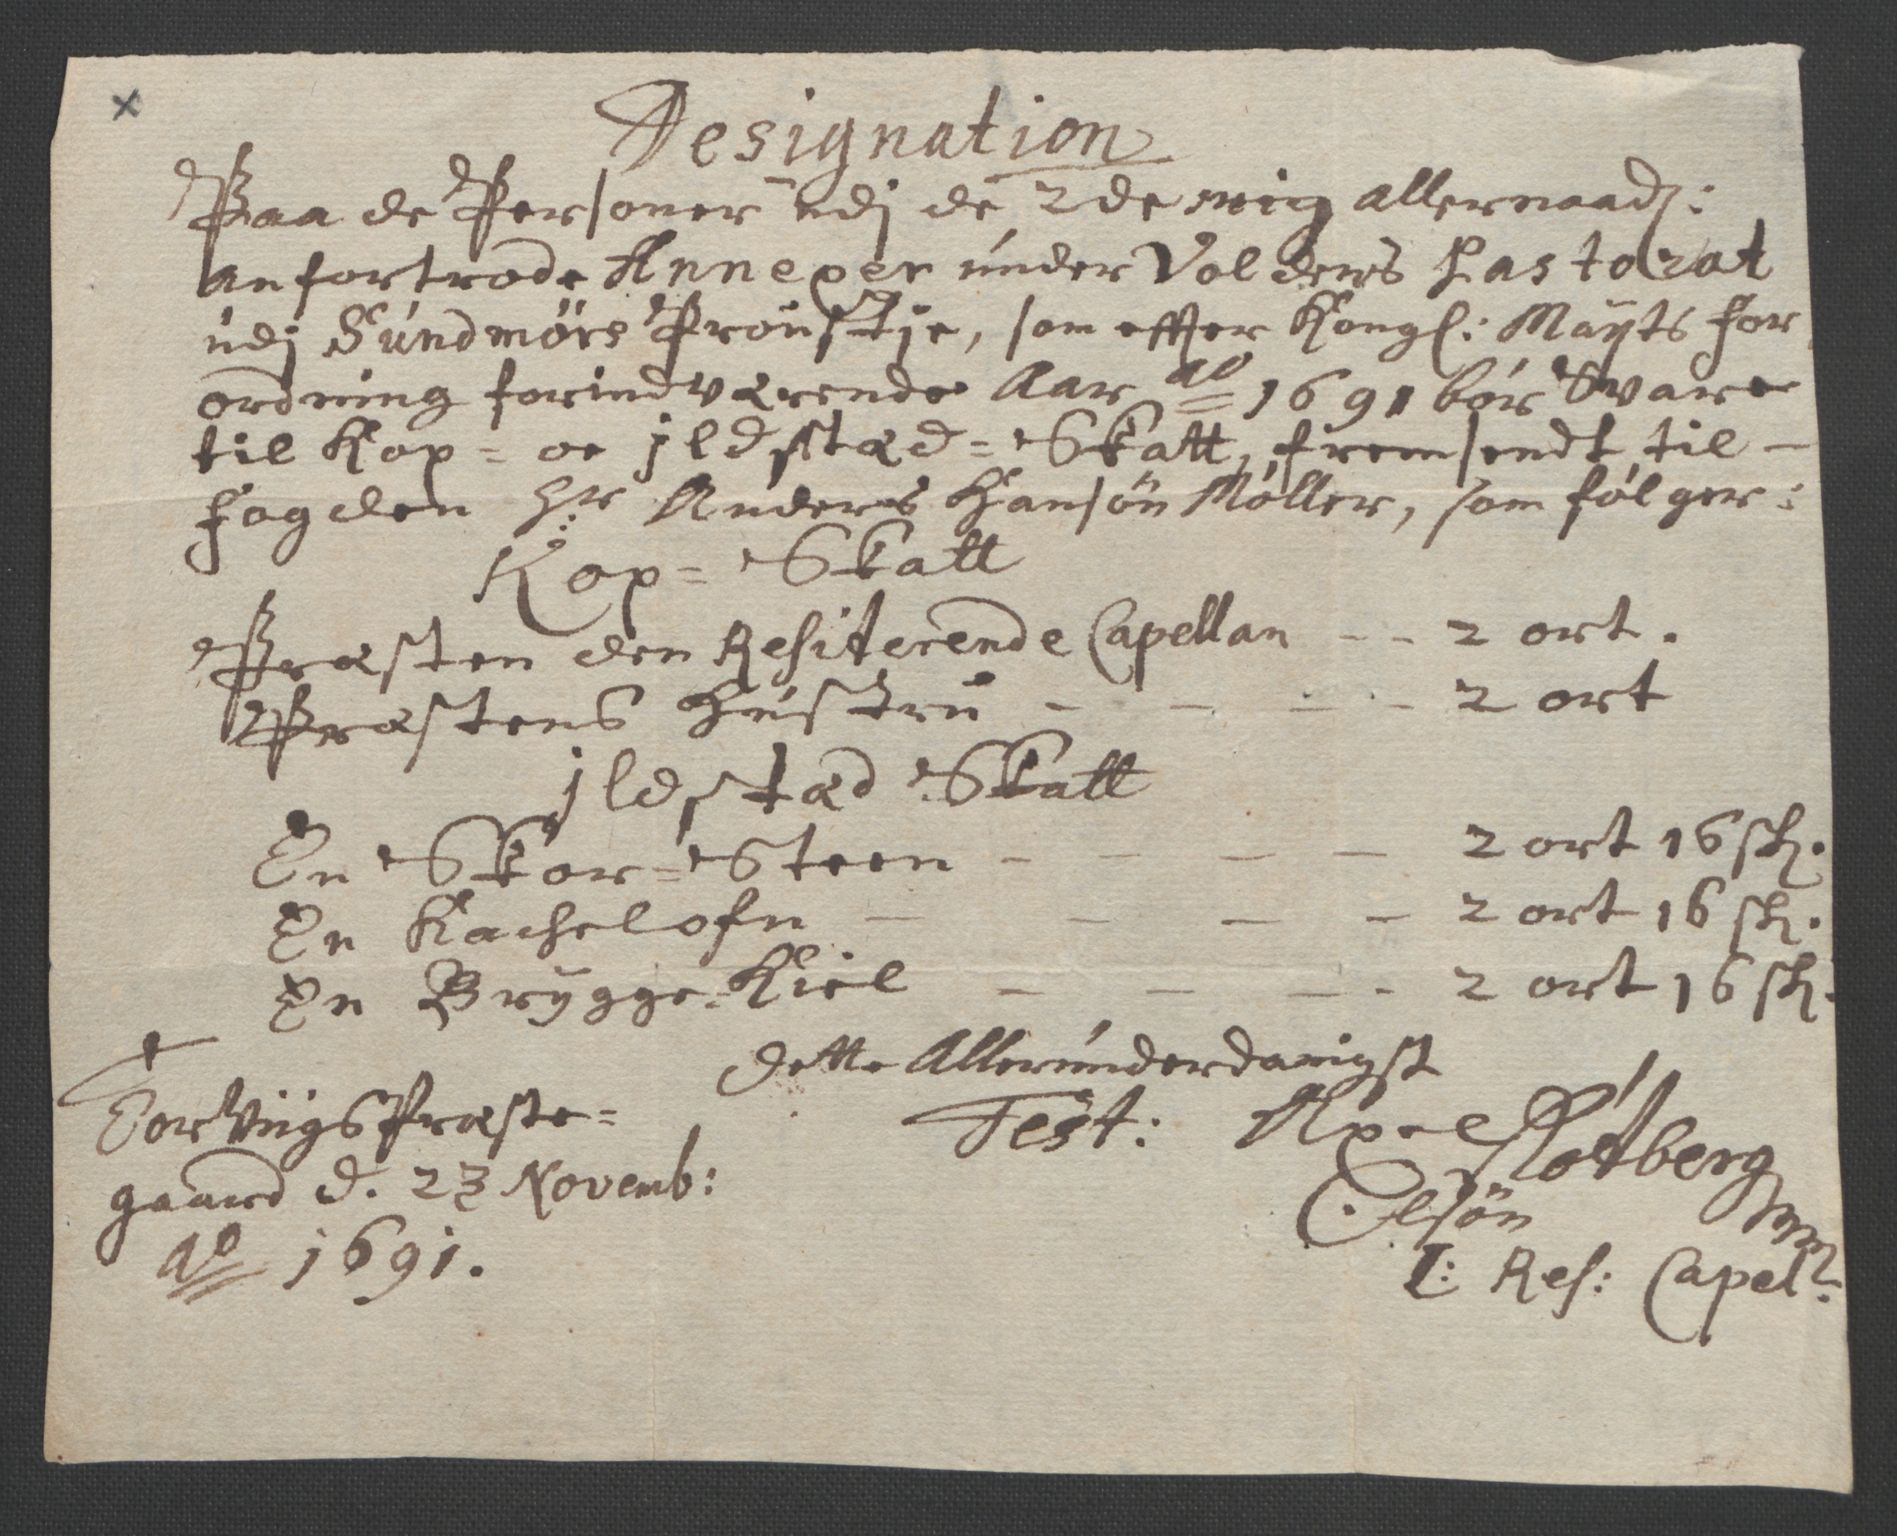 x
Designation
Paa de Personer udj de 2de mig allernaadl:
anfortrode Annexer under Voldens Pastorat
udj Sundmörs Proustje, som effter Kongl: Mayts for
ordning forindværende Aar Ao 1691 bör Svare
til Kop= oc jldstæd=Skatt, fremsendt til
fogden Hr Anders Hansön Möller, som fölger:
Kop=Skatt
Præsten den Resiterende Capellan -- 2 ort.
Præstens Hustru - - - - 2 ort
jldstæd Skatt
En Skor=Steen - - - - 2 ort 16 sk.
En Kachelofn - - - - 2 ort 16 sk.
En Brygge=Kiel - - - - 2 ort 16 sk.
Dette Allerunderdanigst
Test: Axel Rotberg
Elsön
Res: Capel:
Præste=
gaard d. 23 Novemb:
Ao 1691.